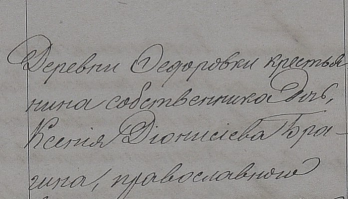 Деревни Ѳедоровки крестья
нина собственника дочь,
Ксенія Діонисіева Бра
гина, православнаго